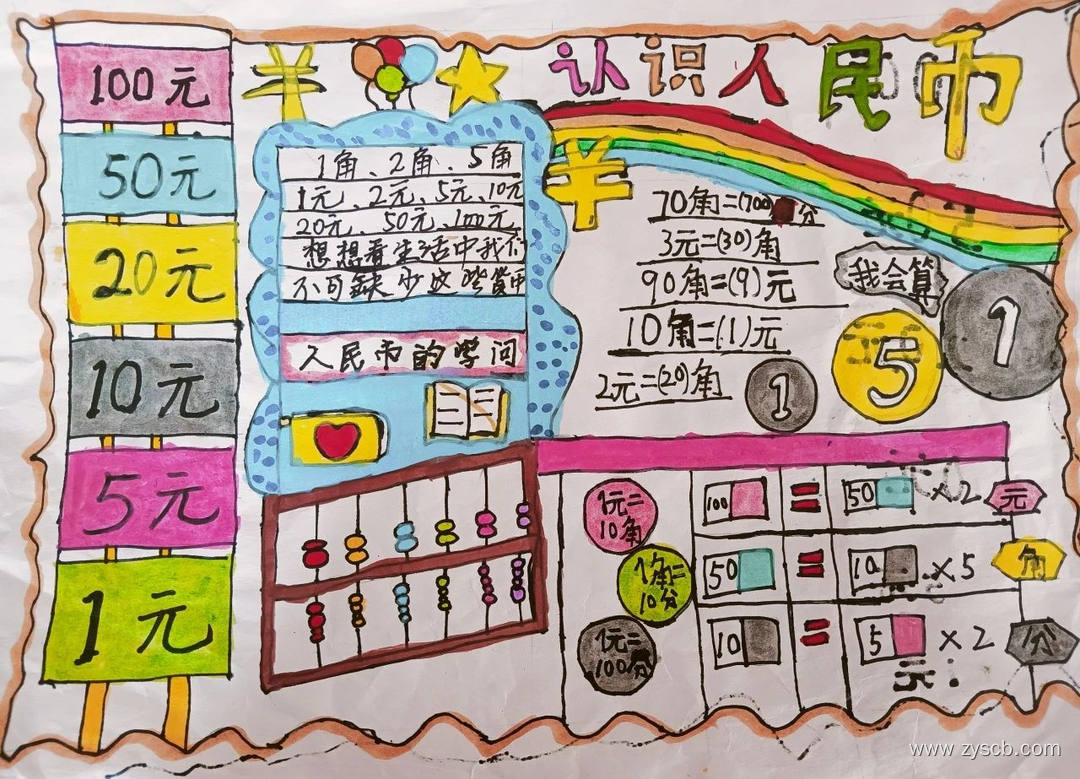 认识人民币
100元
50元
20元
10元
5元
1元
¥
1角、2角、5角
1元、2元、5元、10元
20元、50元、100元
想想看生活中我们
不可缺少这些货币
人民币的学问
¥
70角=(700)分
3元=(30)角
90角=(9)元
10角=(1)元
2元=(20)角
我会算
1
5
1
1元=
10角
1角=
10分
1元=
100分
100 = 50 ×2
50 = 10 ×5
10 = 5 ×2
元
角
分
www.zyscb.com